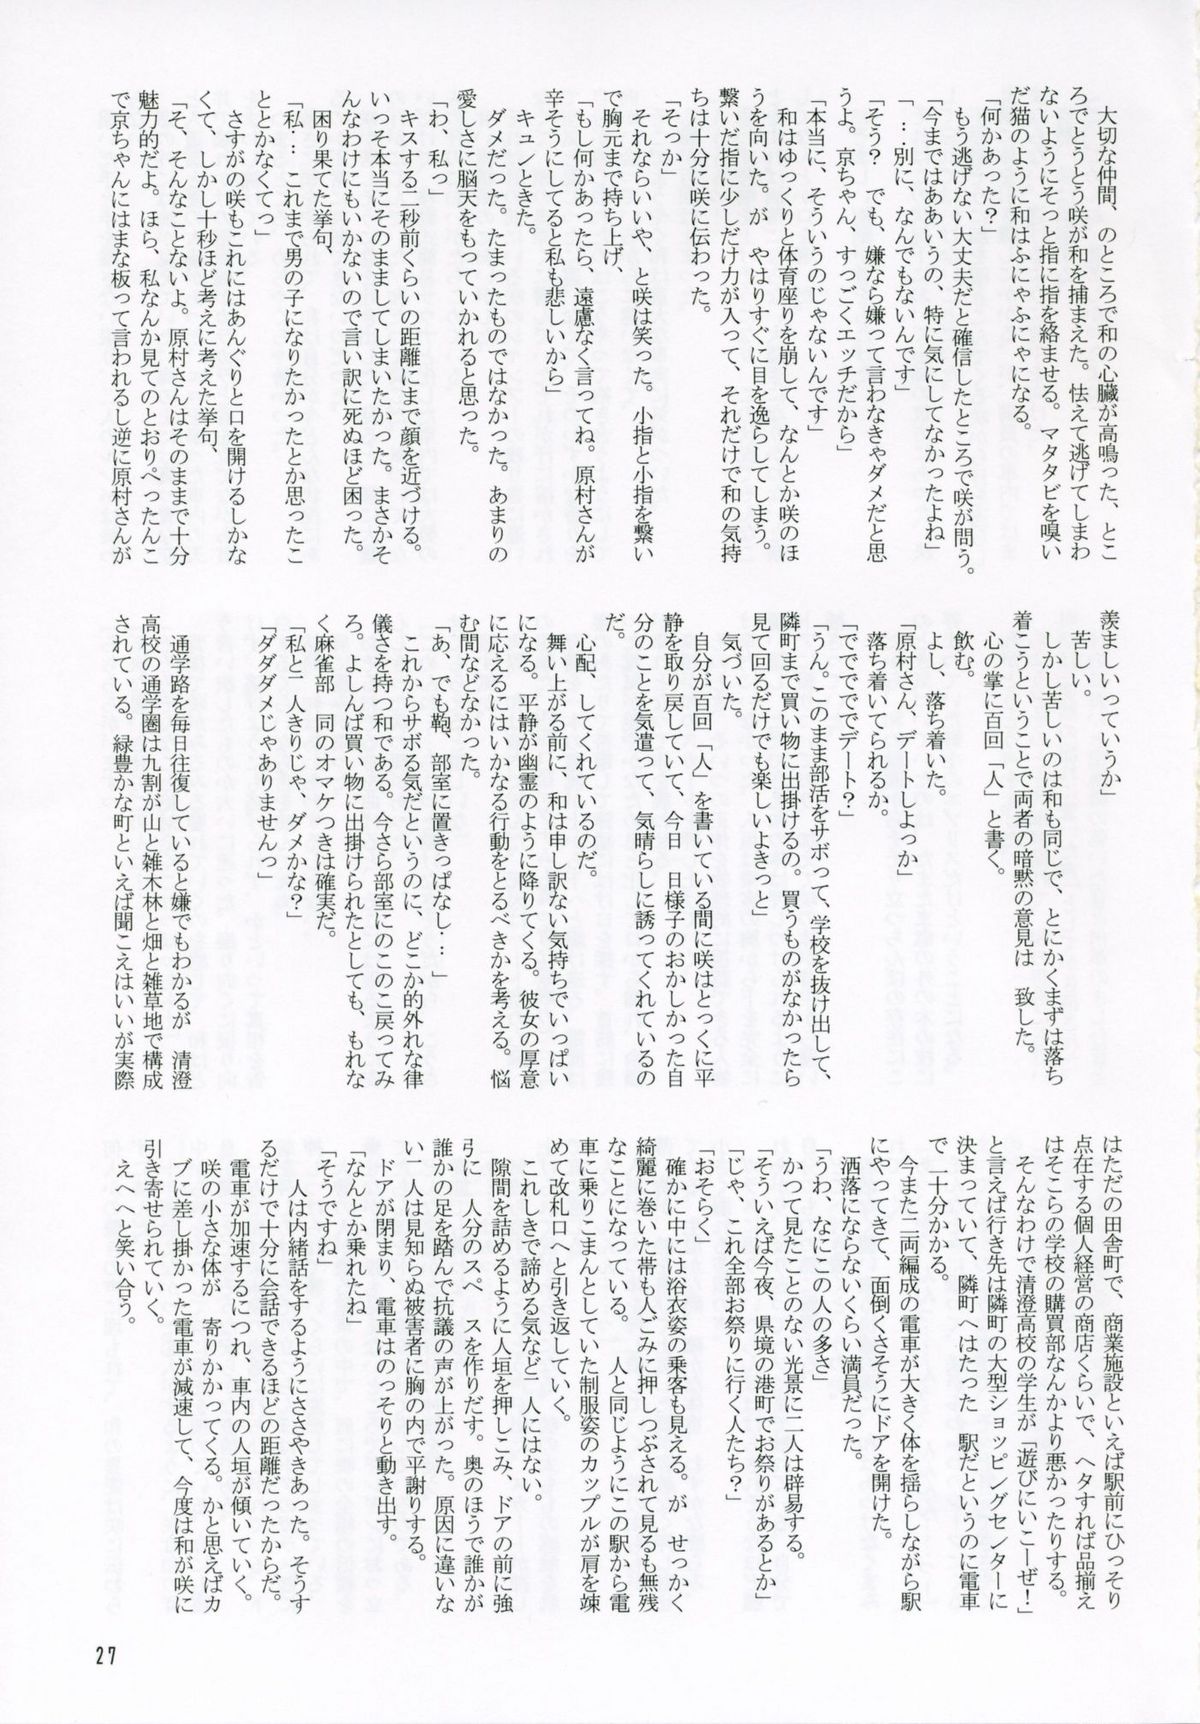 大切な仲間、のところで和の心臓が高鳴った、とこ
ろでとうとう咲が和を捕まえた。怯えて逃げてしまわ
ないようにそっと指に指を絡ませる。マタタビを嗅い
だ猫のように和はふにゃふにゃになる。
「何かあった？」
もう逃げない大丈夫だと確信したところで咲が問う。
「今まではああいうの、特に気にしてなかったよね」
「…別に、なんでもないんです」
「そう？　でも、嫌なら嫌って言わなきゃダメだと思
うよ。京ちゃん、すっごくエッチだから」
「本当に、そういうのじゃないんです」
和はゆっくりと体育座りを崩して、なんとか咲のほ
うを向いた。が　やはりすぐに目を逸らしてしまう。
繋いだ指に少しだけ力が入って、それだけで和の気持
ちは十分に咲に伝わった。
「そっか」
それならいいや、と咲は笑った。小指と小指を繋い
で胸元まで持ち上げ、
「もし何かあったら、遠慮なく言ってね。原村さんが
辛そうにしてると私も悲しいから」
キュンときた。
ダメだった。たまったものではなかった。あまりの
愛しさに脳天をもっていかれると思った。
「わ、私っ」
キスする二秒前くらいの距離にまで顔を近づける。
いっそ本当にそのまましてしまいたかった。まさかそ
んなわけにもいかないので言い訳に死ぬほど困った。
困り果てた挙句、
「私…　これまで男の子になりたかったとか思ったこ
ととかなくてっ」
さすがの咲もこれにはあんぐりと口を開けるしかな
くて、しかし十秒ほど考えに考えた挙句、
「そ、そんなことないよ。原村さんはそのままで十分
魅力的だよ。ほら、私なんか見てのとおりぺったんこ
で京ちゃんにはまな板って言われるし逆に原村さんが
羨ましいっていうか」
苦しい。
しかし苦しいのは和も同じで、とにかくまずは落ち
着こうということで両者の暗黙の意見は　致した。
心の掌に百回「人」と書く。
飲む。
よし、落ち着いた。
「原村さん、デートしよっか」
落ち着いてられるか。
「ででででデート？」
「うん。このまま部活をサボって、学校を抜け出して、
隣町まで買い物に出掛けるの。買うものがなかったら
見て回るだけでも楽しいよきっと」
気づいた。
自分が百回「人」を書いている間に咲はとっくに平
静を取り戻していて、今日　日様子のおかしかった自
分のことを気遣って、気晴らしに誘ってくれているの
だ。
心配、してくれているのだ。
舞い上がる前に、和は申し訳ない気持ちでいっぱい
になる。平静が幽霊のように降りてくる。彼女の厚意
に応えるにはいかなる行動をとるべきかを考える。悩
む間などなかった。
「あ、でも鞄、部室に置きっぱなし…」
これからサボる気だというのに、どこか的外れな律
儀さを持つ和である。今さら部室にのこのこ戻ってみ
ろ。よしんば買い物に出掛けられたとしても、もれな
く麻雀部　同のオマケつきは確実だ。
「私と二人きりじゃ、ダメかな？」
「ダダダメじゃありませんっ」
通学路を毎日往復していると嫌でもわかるが　清澄
高校の通学圏は九割が山と雑木林と畑と雑草地で構成
されている。緑豊かな町といえば聞こえはいいが実際
はただの田舎町で、商業施設といえば駅前にひっそり
点在する個人経営の商店くらいで、ヘタすれば品揃え
はそこらの学校の購買部なんかより悪かったりする。
そんなわけで清澄高校の学生が「遊びにいこーぜ！」
と言えば行き先は隣町の大型ショッピングセンターに
決まっていて、隣町へはたった　駅だというのに電車
で二十分かかる。
今また二両編成の電車が大きく体を揺らしながら駅
にやってきて、面倒くさそうにドアを開けた。
洒落にならないくらい満員だった。
「うわ、なにこの人の多さ」
かつて見たことのない光景に二人は辟易する。
「そういえば今夜、県境の港町でお祭りがあるとか」
「じゃ、これ全部お祭りに行く人たち？」
「おそらく」
確かに中には浴衣姿の乗客も見える。が　せっかく
綺麗に巻いた帯も人ごみに押しつぶされて見るも無残
なことになっている。二人と同じようにこの駅から電
車に乗りこまんとしていた制服姿のカップルが肩を竦
めて改札口へと引き返していく。
これしきで諦める気など二人にはない。
隙間を詰めるように人垣を押しこみ、ドアの前に強
引に二人分のスペースを作りだす。奥のほうで誰かが
誰かの足を踏んで抗議の声が上がった。原因に違いな
い二人は見知らぬ被害者に胸の内で平謝りする。
ドアが閉まり、電車はのっそりと動き出す。
「なんとか乗れたね」
「そうですね」
二人は内緒話をするようにささやきあった。そうす
るだけで十分に会話できるほどの距離だったからだ。
電車が加速するにつれ、車内の人垣が傾いていく。
咲の小さな体が　寄りかかってくる。かと思えばカ
ーブに差し掛かった電車が減速して、今度は和が咲に
引き寄せられていく。
えへへと笑い合う。
27